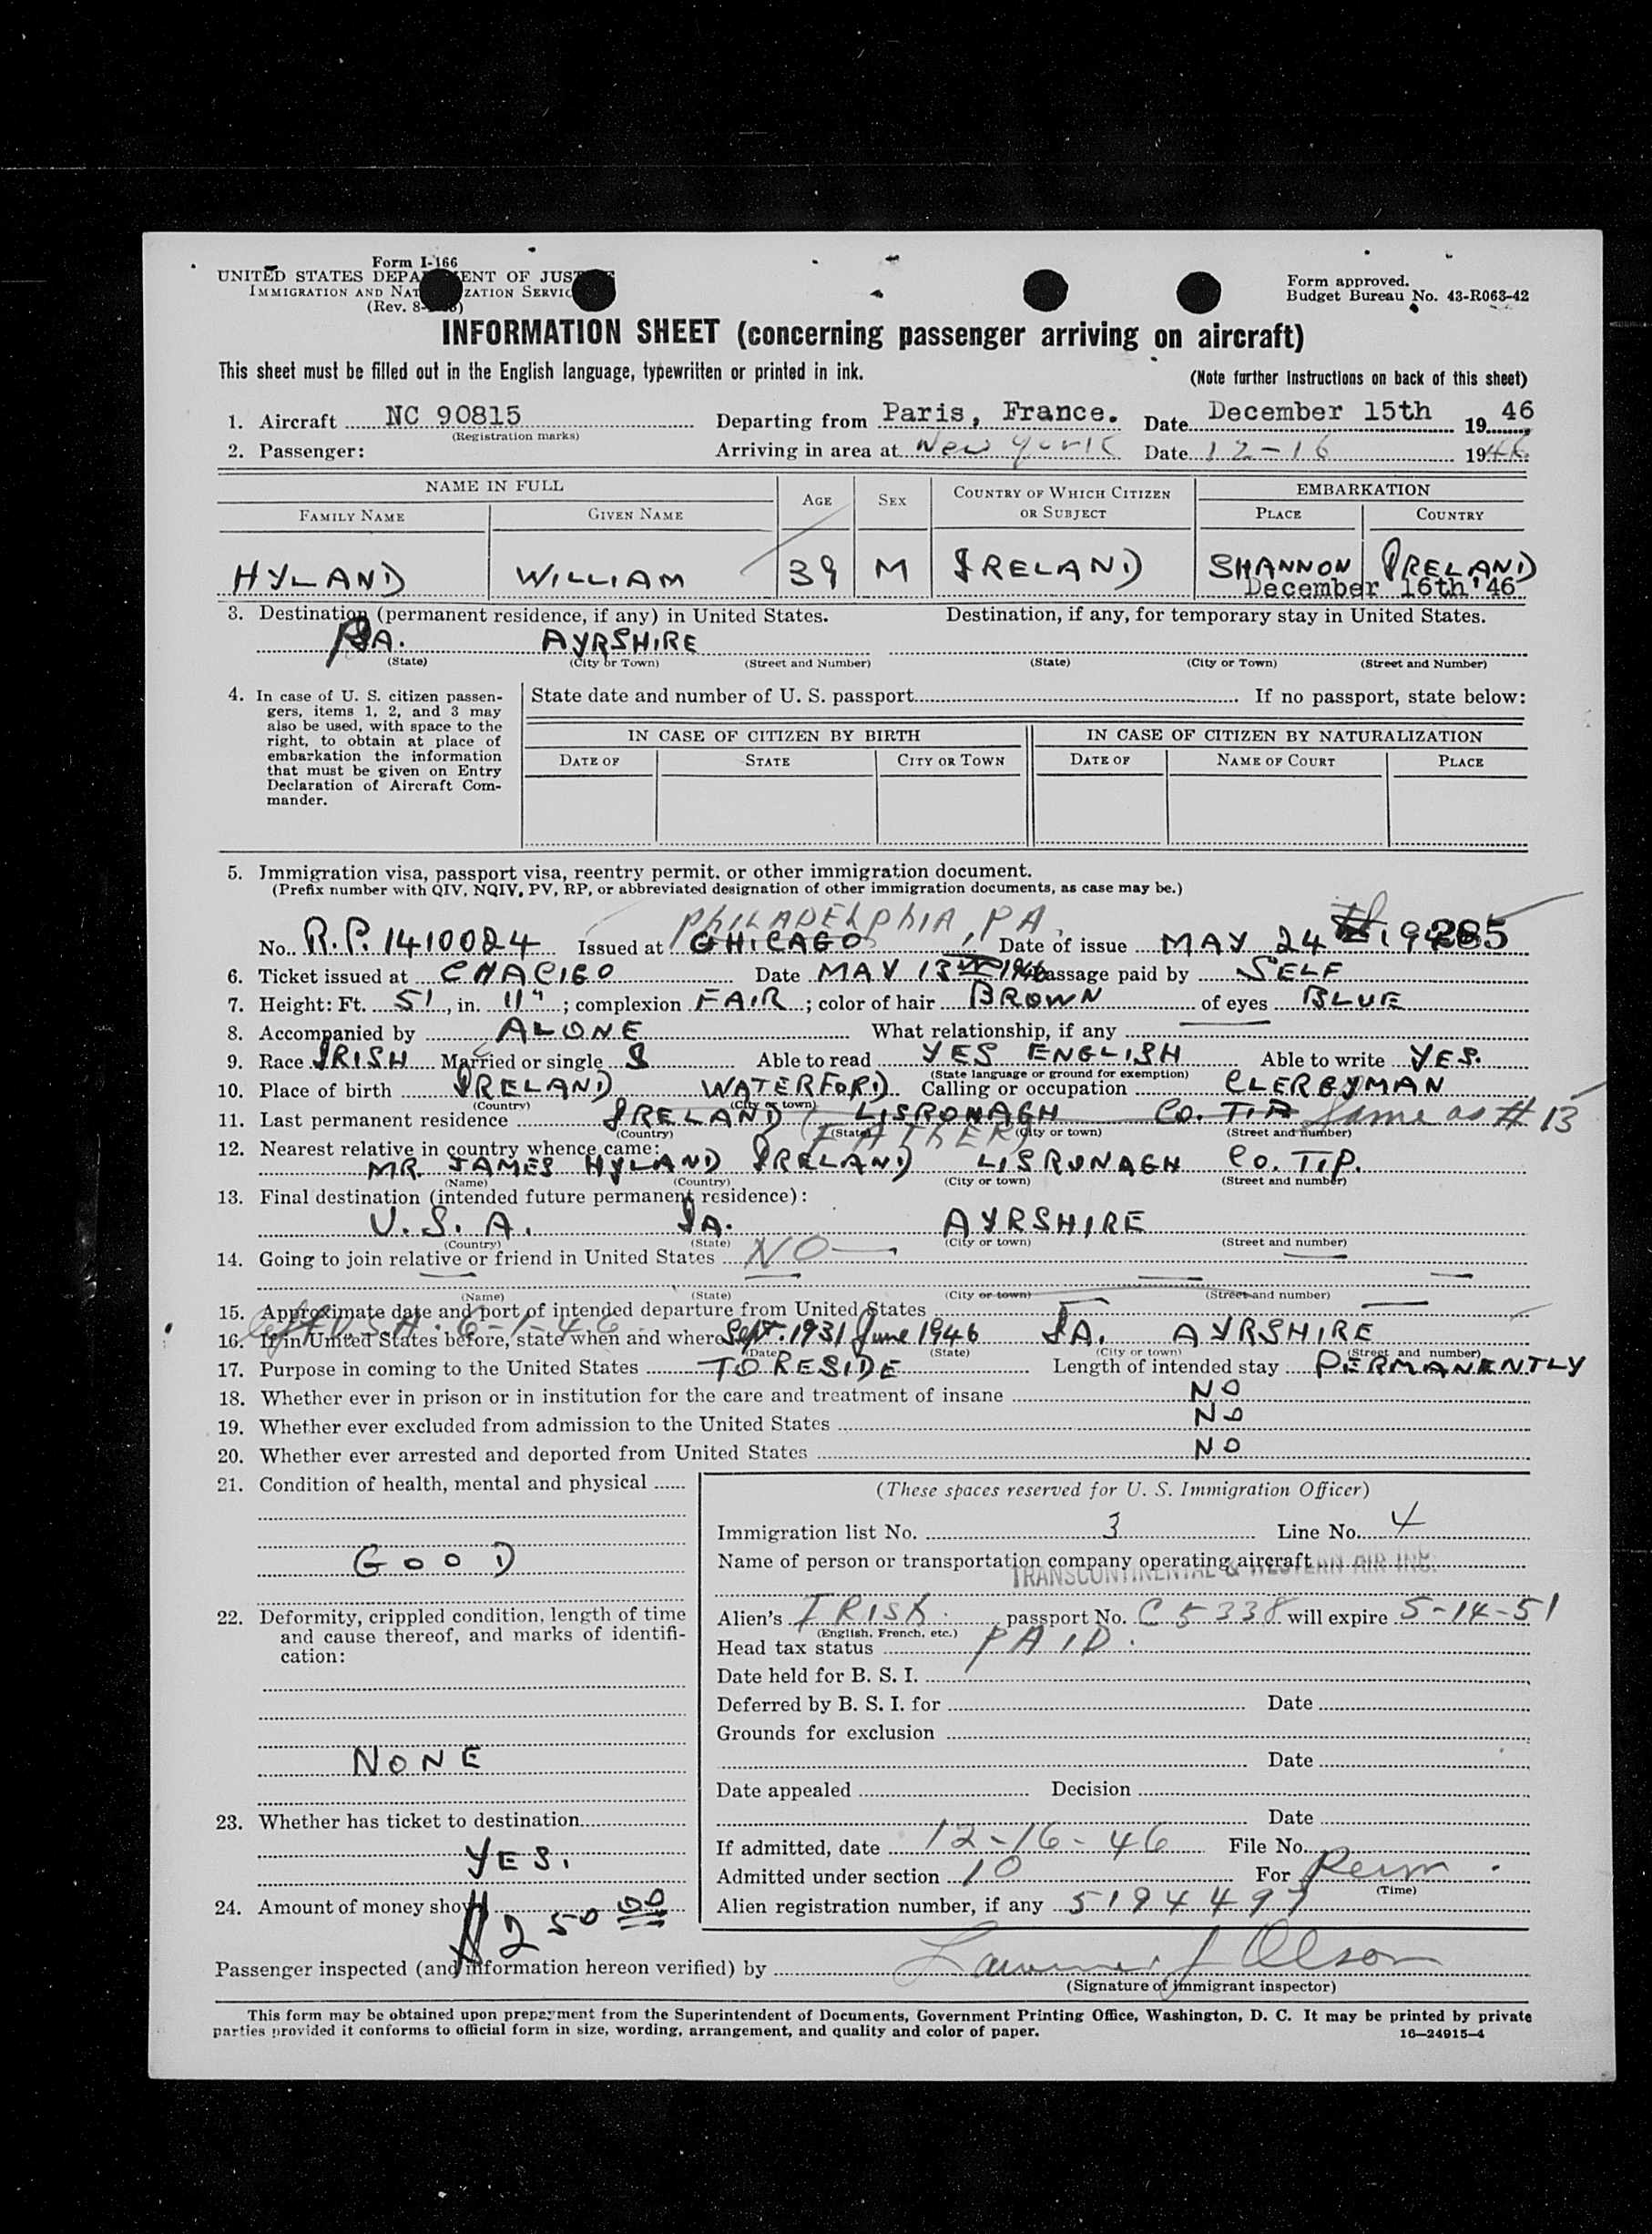 Form I-166
UNITED STATES DEPA ENT OF JUS
IMMIGRATION AND NAT ZATION SERVIC
(Rev. 8-
Form approved.
Budget Bureau No. 43-R063-42
INFORMATION SHEET (concerning passenger arriving on aircraft)
This sheet must be filled out in the English language, typewritten or printed in ink.
(Note further instructions on back of this sheet)
1. Aircraft NC 90815 Departing from Paris, France. Date December 15th 19 46
(Registration marks)
2. Passenger: Arriving in area at New York Date 12-16 1946
NAME IN FULL AGE SEX COUNTRY OF WHICH CITIZEN OR SUBJECT EMBARKATION
FAMILY NAME GIVEN NAME PLACE COUNTRY
HYLAND WILLIAM 39 M IRELAND SHANNON IRELAND
December 16th '46
3. Destination (permanent residence, if any) in United States. Destination, if any, for temporary stay in United States.
IA. AYRSHIRE
(State) (City or Town) (Street and Number) (State) (City or Town) (Street and Number)
4. In case of U. S. citizen passengers, items 1, 2, and 3 may also be used, with space to the right, to obtain at place of embarkation the information that must be given on Entry Declaration of Aircraft Commander.
State date and number of U. S. passport If no passport, state below:
IN CASE OF CITIZEN BY BIRTH IN CASE OF CITIZEN BY NATURALIZATION
DATE OF STATE CITY OR TOWN DATE OF NAME OF COURT PLACE
5. Immigration visa, passport visa, reentry permit, or other immigration document.
(Prefix number with QIV, NQIV, PV, RP, or abbreviated designation of other immigration documents, as case may be.)
PHILADELPHIA, PA.
No. R.P. 1410024 Issued at CHICAGO Date of issue MAY 24 285
6. Ticket issued at CHACIGO Date MAY 13 1946 Passage paid by SELF
7. Height: Ft. 5', in. 11"; complexion FAIR; color of hair BROWN of eyes BLUE
8. Accompanied by ALONE What relationship, if any
9. Race IRISH Married or single S Able to read YES ENGLISH Able to write YES.
(State language or ground for exemption)
10. Place of birth IRELAND WATERFORD Calling or occupation CLERGYMAN
(Country) (City or town)
11. Last permanent residence IRELAND LISRONAGH Co. TIP Same as # 13
(Country) (State) (City or town) (Street and number)
12. Nearest relative in country whence came: (FATHER)
MR. JAMES HYLAND IRELAND LISRONAGH Co. TIP.
(Name) (Country) (City or town) (Street and number)
13. Final destination (intended future permanent residence):
U. S. A. IA. AYRSHIRE
(Country) (State) (City or town) (Street and number)
14. Going to join relative or friend in United States NO
(Name) (State) (City or town) (Street and number)
15. Approximate date and port of intended departure from United States
left U.S.A. 6-1-46
16. If in United States before, state when and where Sept. 1931 June 1946 IA. AYRSHIRE
(Date) (State) (City or town) (Street and number)
17. Purpose in coming to the United States TO RESIDE Length of intended stay PERMANENTLY
18. Whether ever in prison or in institution for the care and treatment of insane NO
19. Whether ever excluded from admission to the United States NO
20. Whether ever arrested and deported from United States NO
21. Condition of health, mental and physical
GOOD
22. Deformity, crippled condition, length of time and cause thereof, and marks of identification:
NONE
23. Whether has ticket to destination
YES.
24. Amount of money shown $250 00
(These spaces reserved for U. S. Immigration Officer)
Immigration list No. 3 Line No. 4
Name of person or transportation company operating aircraft
TRANSCONTINENTAL & WESTERN AIR INC.
Alien's IRISH passport No. C 5338 will expire 5-14-51
(English, French, etc.)
Head tax status PAID.
Date held for B. S. I.
Deferred by B. S. I. for Date
Grounds for exclusion
Date
Date appealed Decision
Date
If admitted, date 12-16-46 File No.
Admitted under section 10 For Perm.
(Time)
Alien registration number, if any 5194497
Passenger inspected (and information hereon verified) by Lawrence J Olson
(Signature of immigrant inspector)
This form may be obtained upon prepayment from the Superintendent of Documents, Government Printing Office, Washington, D. C. It may be printed by private
parties provided it conforms to official form in size, wording, arrangement, and quality and color of paper. 16—24915-4